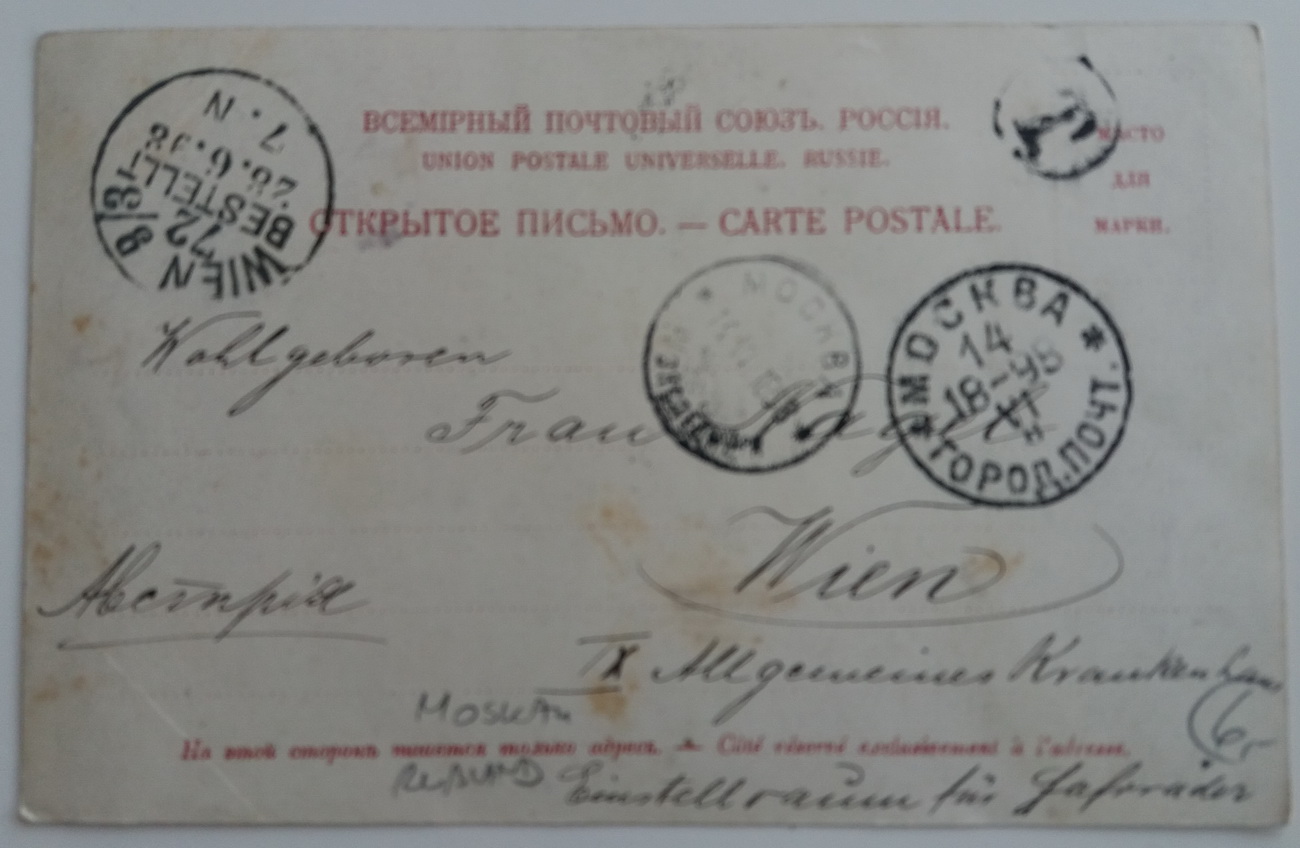 ВСЕМІРНЫЙ ПОЧТОВЫЙ СОЮЗЪ. РОССІЯ.
UNION POSTALE UNIVERSELLE. RUSSIE.
ОТКРЫТОЕ ПИСЬМО. — CARTE POSTALE.
МѢСТО
ДЛЯ
МАРКИ.
WIEN 9/3
72
BESTELLT
28.6.98
7. N
МОСКВА
МОСКВА
14
18-98
VI
ГОРОД. ПОЧТ.
Wohlgeboren
Frau
Wien
Австрія
IX Allgemeines Krankenhaus
Moskau
6,-
На этой сторонѣ пишется только адресъ. — Côté réservé exclusivement à l'adresse.
Rußland
Einstellraum für Fahrräder